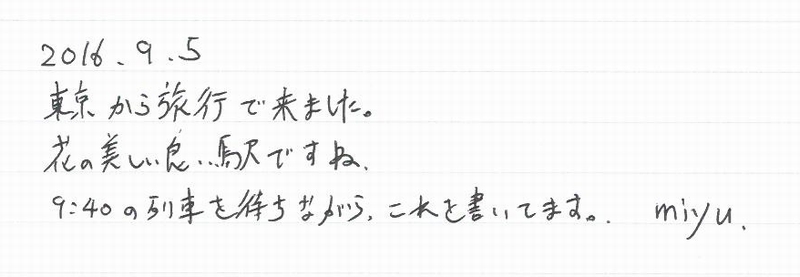 2016.9.5
東京から旅行で来ました。
花の美しい良い駅ですね、
9:40の列車を待ちながら、これを書いてます。. miyu.